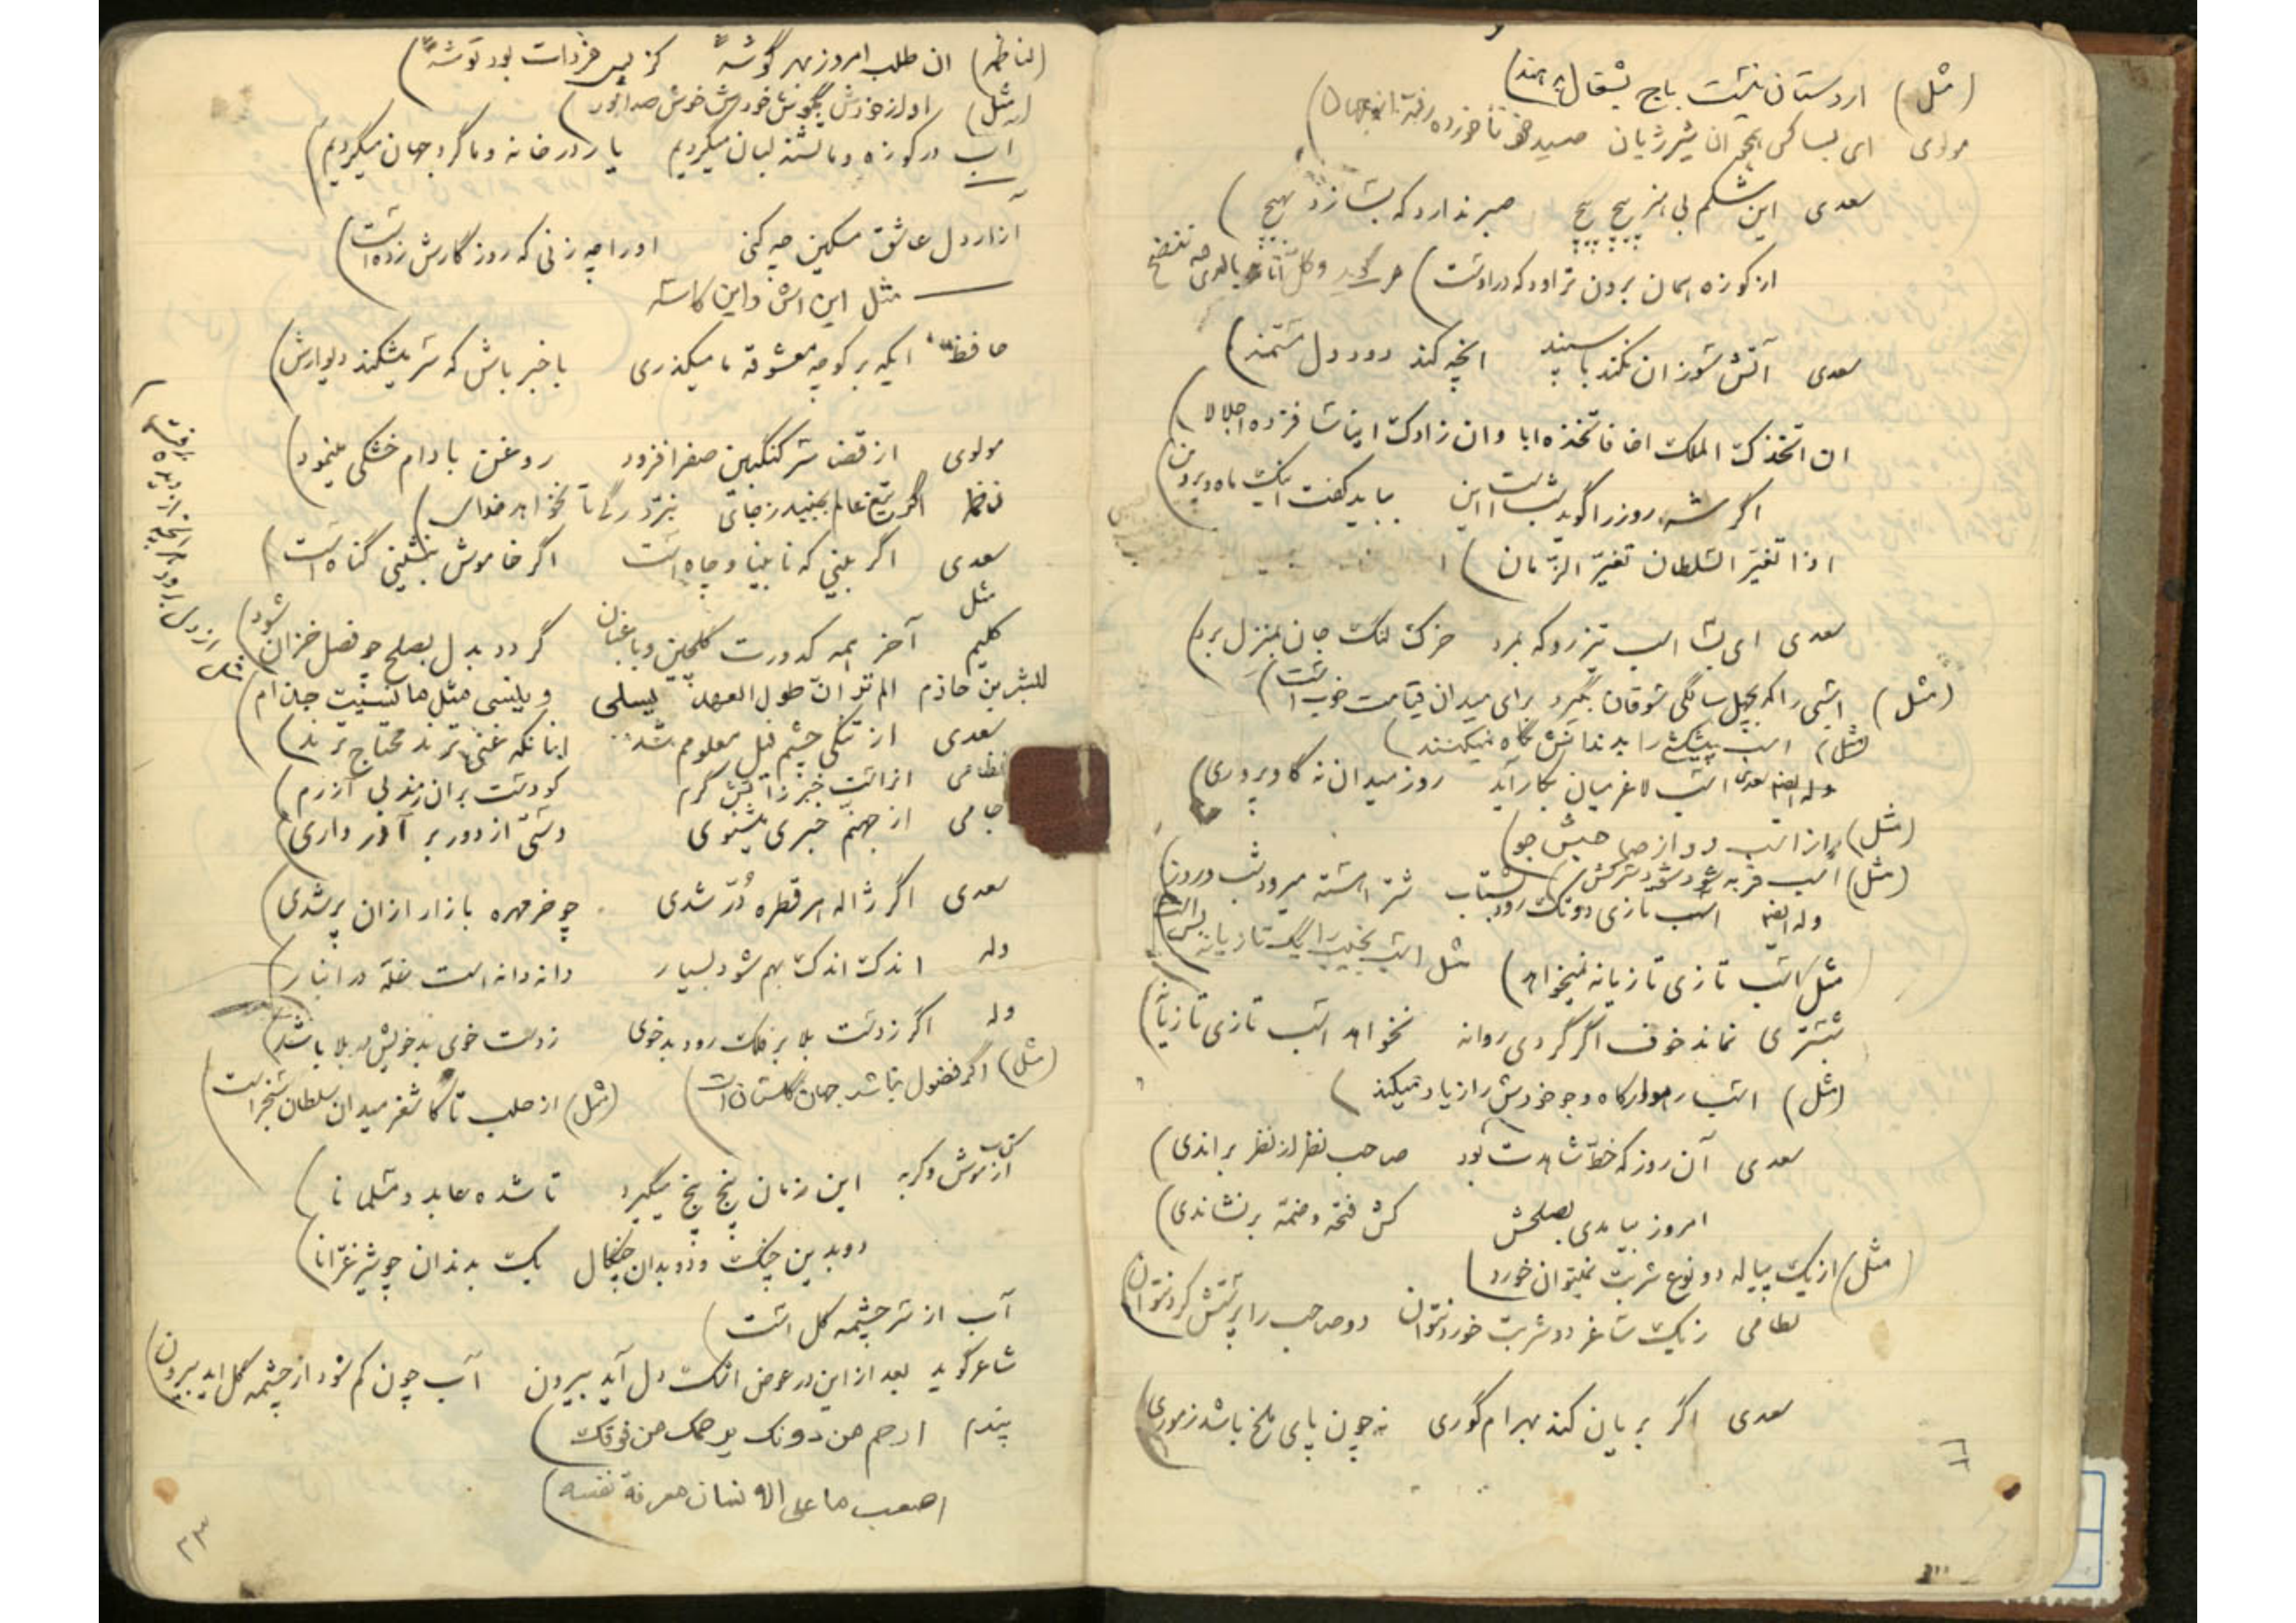 (مثل) اردستان نیست باج بشغال بدهند)
مولوی ای بسا کس همچو ان شیر ژیان صید خود ناخورده رفته از جهان)
سعدی این شکم بی هنر پیچ پیچ صبر ندارد که بسازد بهیچ)
از کوزه همان برون تراود که در اوست) عربی گوید وکل اناء بالذی فیه ینضح
سعدی آتش سوزان نکند با سپند انچه کند دود دل مستمند)
ان اتخذک الملک اخا فاتخذه ابا وان زادک ایناسا فزده اجلالا)
اگر شه روز را گوید شب است این بباید گفت اینک ماه و پروین)
اذا تغیر السلطان تغیر الزمان)
سعدی ای بسا اسب تیز رو که بمرد خرک لنگ جان بمنزل برد)
(مثل) اسبی را که بچهل سالگی سوقان بگیرد برای میدان قیامت خوب است)
(مثل) اسب پیشکشی را بدندانش نگاه نمیکنند)
وله ایضا سعدی اسب لاغر میان بکار آید روز میدان نه گاو پرواری)
(مثل) از اسب دو از صاحبش جو)
(مثل) اسب فربه شود شود سرکش)
وله ایضا اسب تازی دو تک رود بشتاب شتر اهسته میرود شب و روز)
مثل اسب تازی تازیانه نمیخواهد) مثل اسب نجیب را یک تازیانه بس است)
شبستری نماند خوف اگر گردی روانه نخواهد اسب تازی تازیانه)
(مثل) اسب راهوار کاه و جو خودش را زیاد میکند)
سعدی آن روز که خط شاهدت بود صاحب نظر از نظر براندی)
امروز بیامدی بصلحش کش فتحه و ضمه بر نشاندی)
مثل) از یک پیاله دو نوع شربت نمیتوان خورد)
نظامی ز یک ساغر دو شربت خورد نتوان دو صاحب را پرستش کرد نتوان)
سعدی اگر بریان کند بهرام گوری نه چون پای ملخ باشد ز موری)
(لناظر) ان طلب امروز بهر گوشه کز پس فردات بود توشه)
(مثل) اواز خودش بگوش خودش خوش صدا
آب در کوزه و ما تشنه لبان میگردیم یار در خانه و ما گرد جهان میگردیم)
آزار دل عاشق مسکین چه کنی او را چه زنی که روزگارش زده است)
مثل این اش و این کاسه
حافظ ایکه بر کوچه معشوقه ما میگذری با خبر باش که سر میشکند دیوارش)
مولوی از قضا سرکنگبین صفرا فزود روغن بادام خشکی مینمود)
اگر تیغ عالم بجنبد ز جای نبرد رگی تا نخواهد خدای)
سعدی اگر بینی که نابینا و چاه است اگر خاموش بنشینی گناه است)
مثل
کلیم آخر همه کدورت گلچین و باغبان گردد بدل بصلح چو فصل خزان شود)
للبشر بن حازم الم تر ان طول العهد یسلی و ینسی مثل ما نسیت جذام
سعدی از تنگی چشم فیل معلومم شد انانکه غنی ترند محتاج ترند)
نظامی از اتش خیزد آتش گرم کو دست بران زند بی آزرم)
جامی از جهنم خبری میشنوی دستی از دور بر آذر داری)
سعدی اگر ژاله هر قطره در شدی چو خرمهره بازار ازان پر شدی)
وله اندک اندک بهم شود بسیار دانه دانه است غله در انبار)
وله اگر ز دست بلا بر فلک رود بدخوی ز دست خوی بد خویش در بلا باشد)
(مثل) اگر فضول نباشد جهان گلستان است) (مثل) از حلب تا کاشغر میدان سلطان سنجر است)
کتاب از موش و گربه این زمان پنج پنج میگیرد تا شده عابد و مسلمانا)
دو بدین چنگ و دو بدان چنگال یک بدندان چو شیر غرانا)
آب از سر چشمه گل است)
شاعر گوید بعد از این در عوض اشک دل آید بیرون آب چون کم شود از چشمه گل اید بیرون)
پندم ارحم من دونک یرحمک من فوقک)
اصعب ما علی الانسان معرفة نفسه)
۲۳